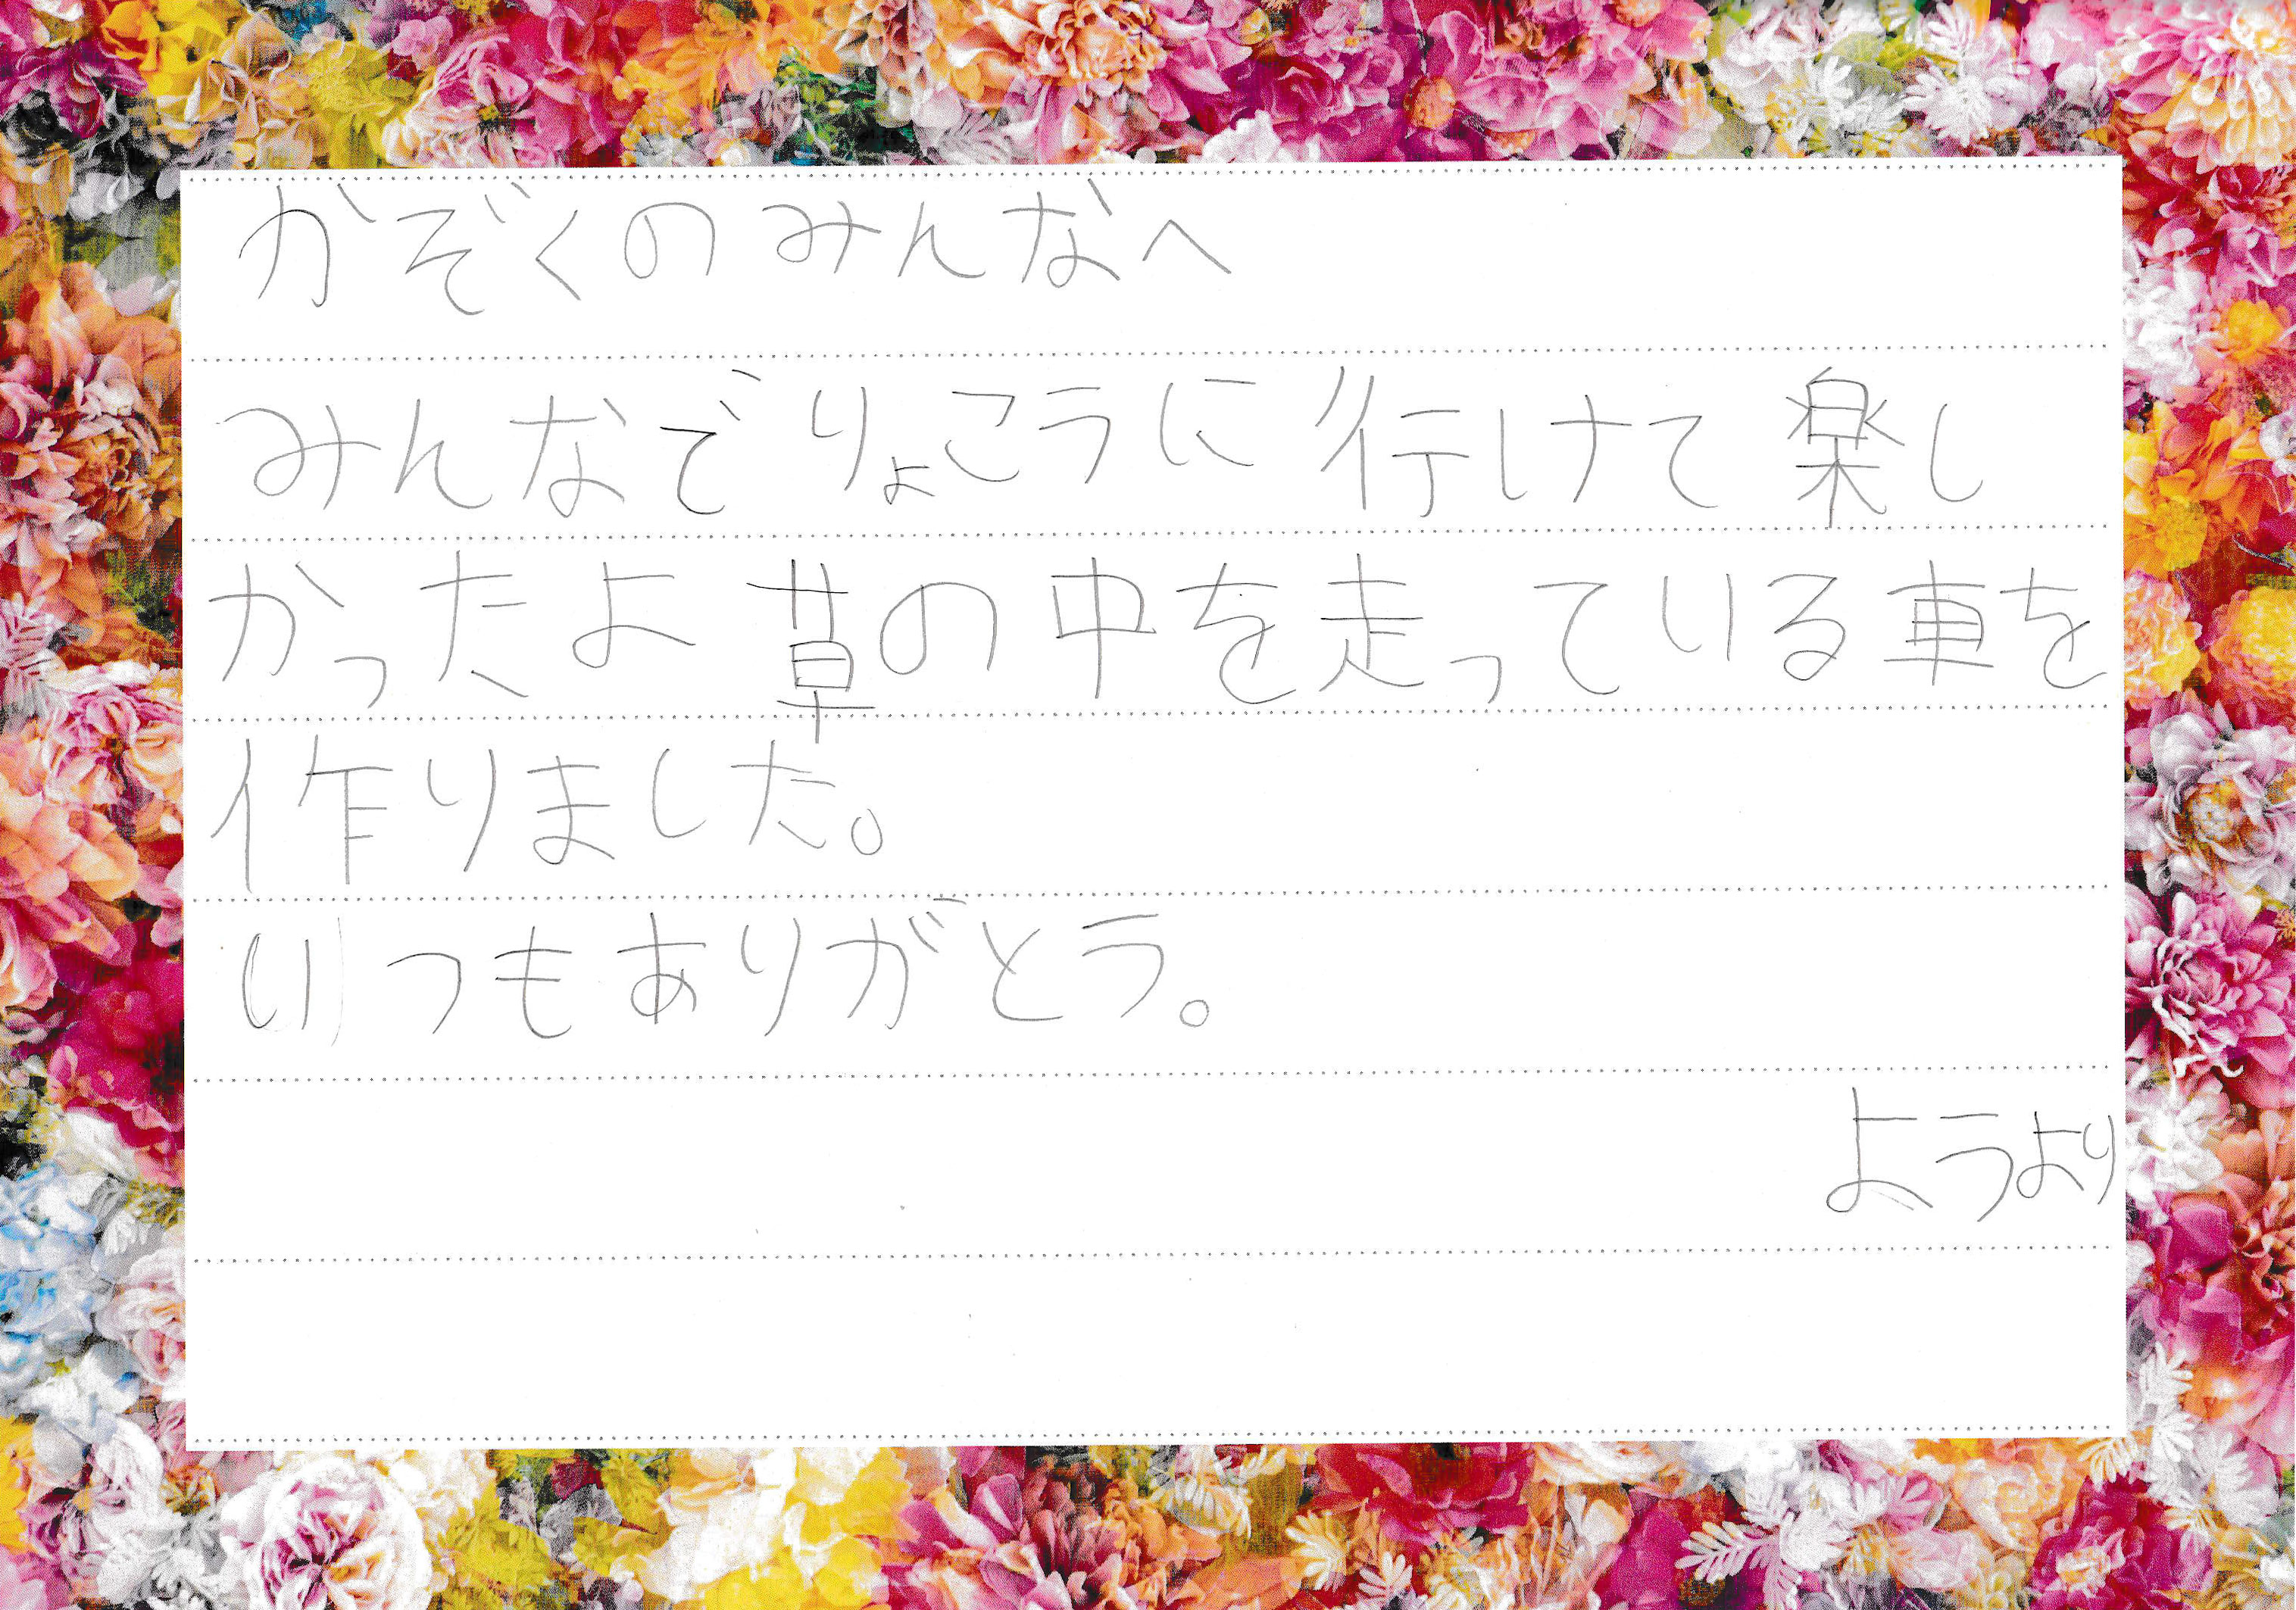 かぞくのみんなへ
みんなでりょこうに行けて楽し
かったよ草の中を走っている車を
作りました。
いつもありがとう。
ようより